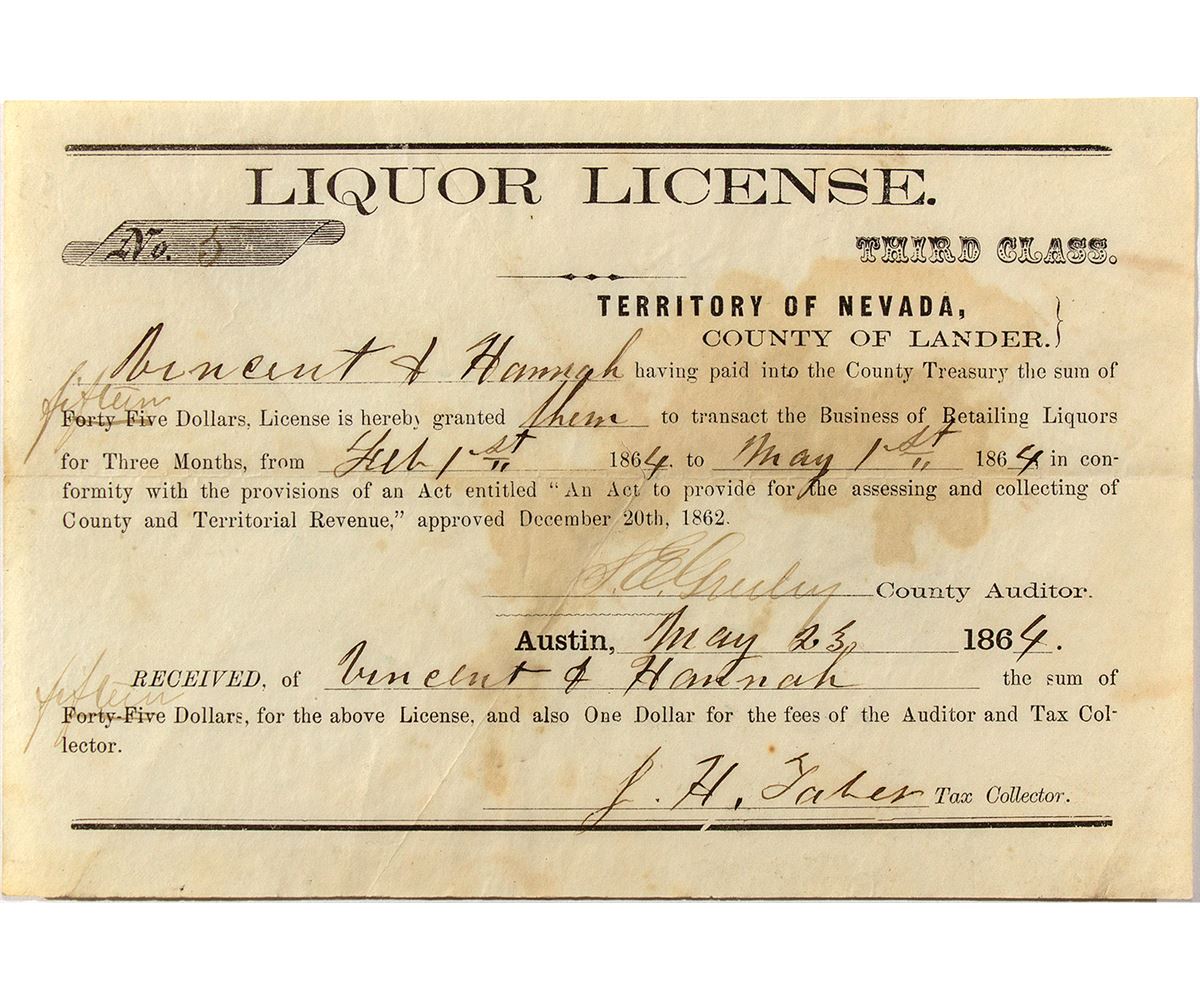 LIQUOR LICENSE.
No. 5
THIRD CLASS.
TERRITORY OF NEVADA,
COUNTY OF LANDER.}
Vincent & Hannah having paid into the County Treasury the sum of
fifteen
Forty Five Dollars, License is hereby granted them to transact the Business of Retailing Liquors
for Three Months, from Feb 1st 1864, to May 1st 1864, in con-
formity with the provisions of an Act entitled "An Act to provide for the assessing and collecting of
County and Territorial Revenue," approved December 20th, 1862.
County Auditor.
Austin, May 23, 1864.
RECEIVED, of Vincent & Hannah the sum of
fifteen
Forty-Five Dollars, for the above License, and also One Dollar for the fees of the Auditor and Tax Col-
lector.
J. H. Taber Tax Collector.